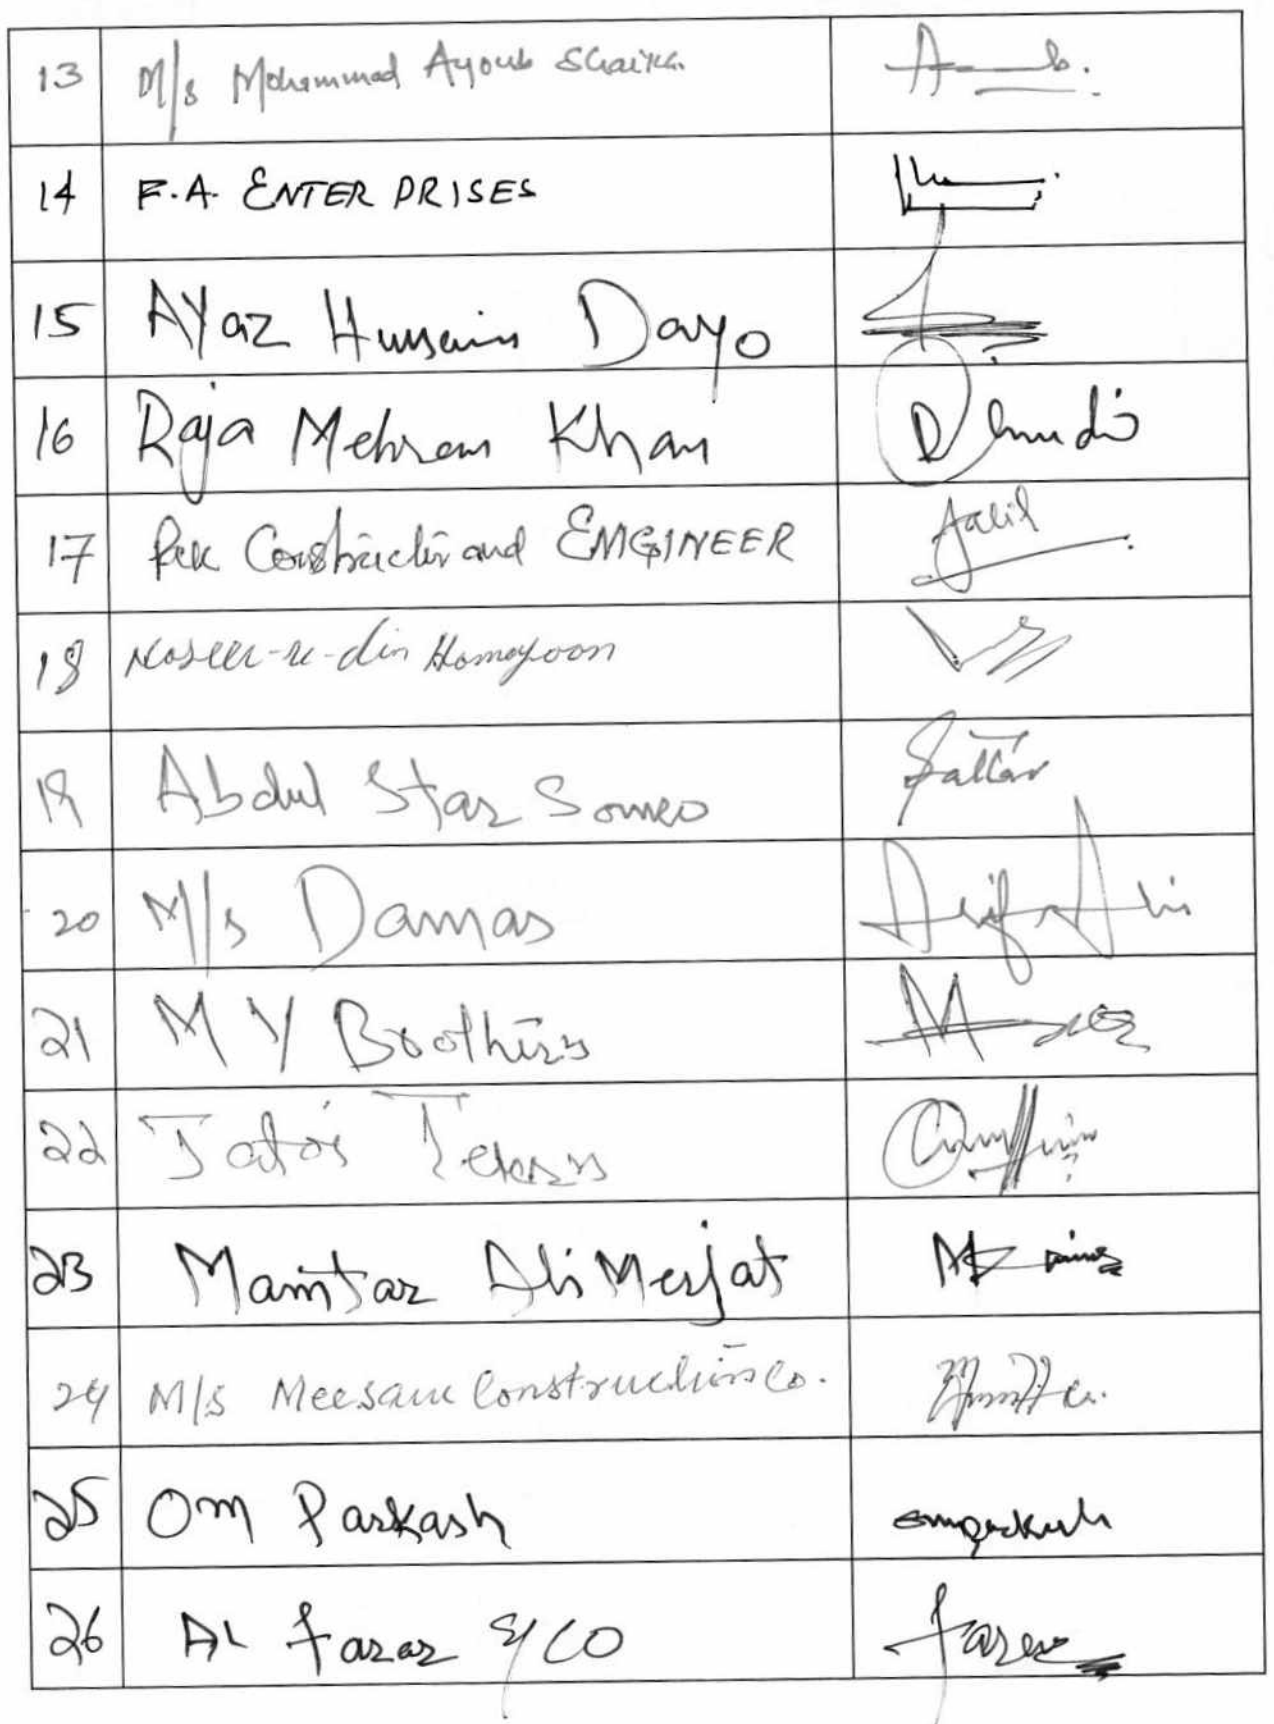 13 M/s Mohammad Ayoub Shaikh.
14 F.A. ENTERPRISES
15 AYaz Hussain Dayo
16 Raja Mehran Khan
17 Construction and ENGINEER Jalil
18 Naseer-u-din Homayoon
19 Abdul Star Somro Sattar
20 M/s Damas Asif Ali
21 M Y Brothers
22 Jatoi
23 Mamtaz Ali Merjat
24 M/s Meesam Construction Co.
25 Om Parkash omparkash
26 AL Faraz & CO Faraz